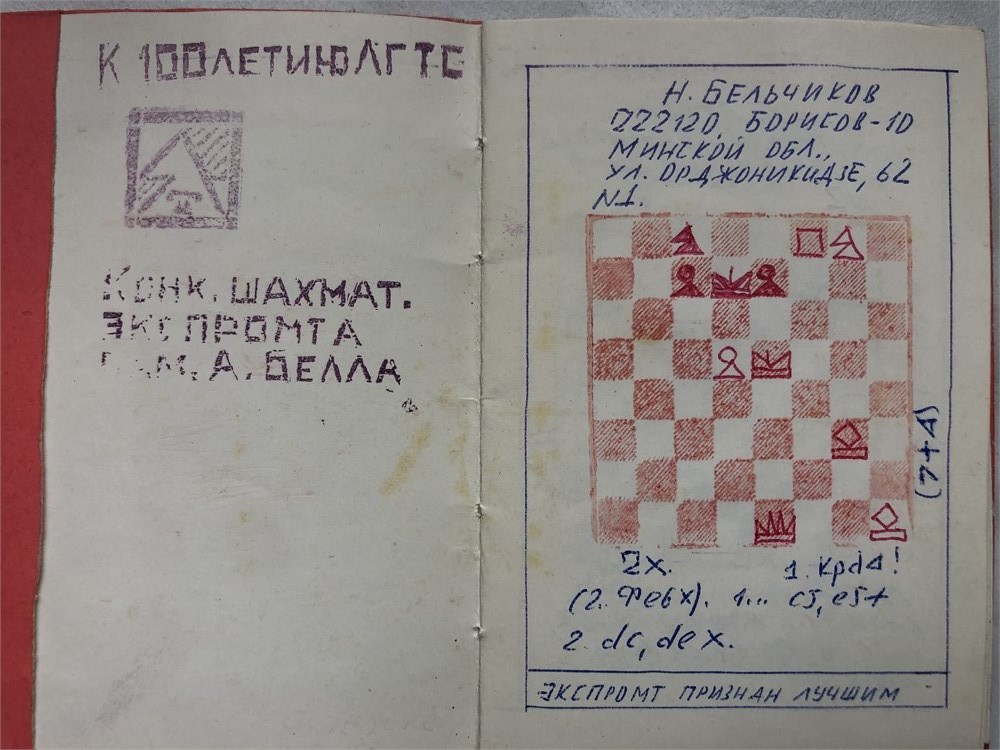 К 100ЛЕТИЮ ЛГТС
КОНК. ШАХМАТ.
ЭКСПРОМТА
А. БЕЛЛА
Н. БЕЛЬЧИКОВ
222120, БОРИСОВ-10
МИНСКОЙ ОБЛ.,
УЛ. ОРДЖОНИКИДЗЕ, 62
N1.
(7+4)
2х. 1. Крd4!
(2. Фe6х). 1... c5, e5+
2. dc, de x.
ЭКСПРОМТ ПРИЗНАН ЛУЧШИМ